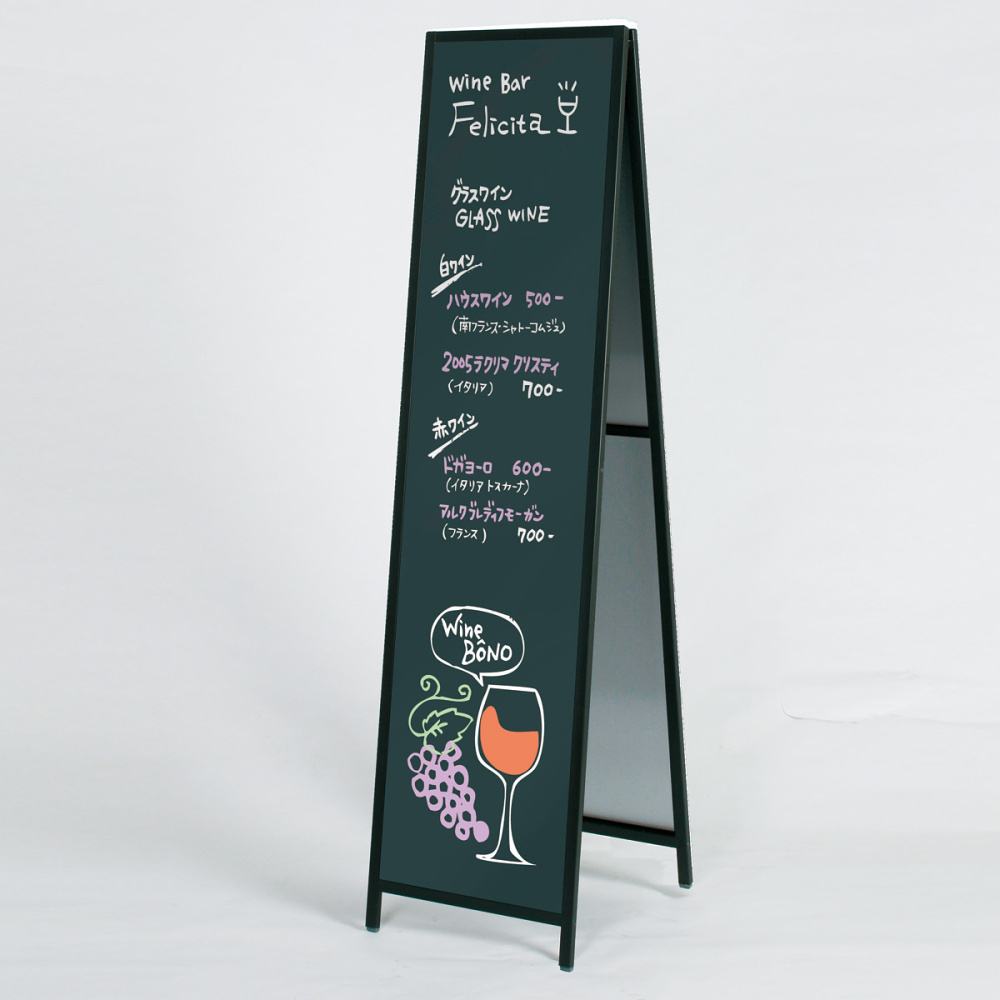 Wine Bar
Felicita
グラスワイン
GLASS WINE
白ワイン
ハウスワイン 500-
(南フランス・シャトーコムジュ)
2005ラクリマ クリスティ
(イタリア) 700-
赤ワイン
ドガヨーロ 600-
(イタリア トスカーナ)
マルク ブレディフモーガン
(フランス) 700-
Wine
BÔNO